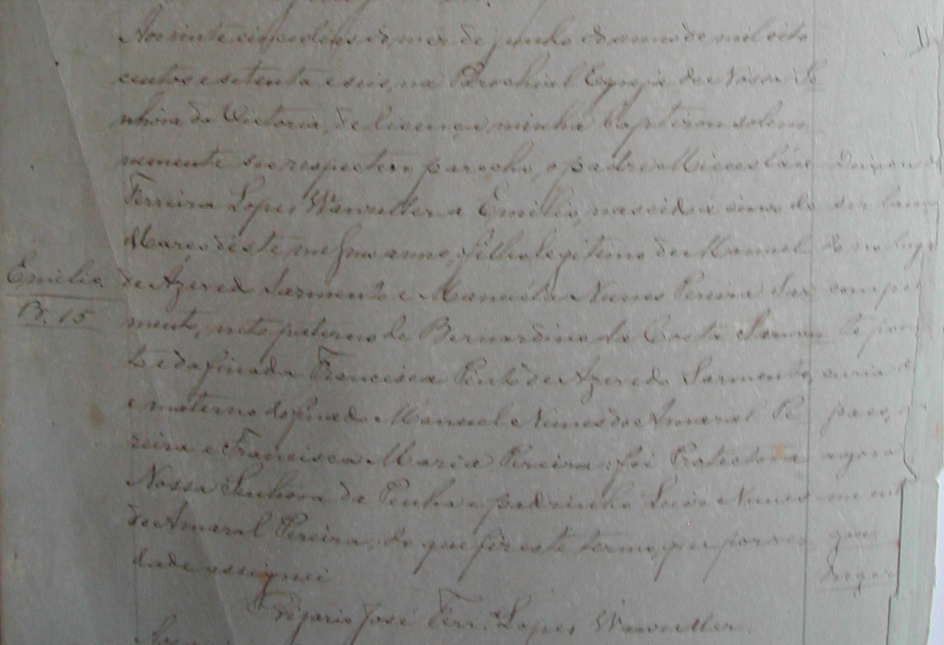 Aos vinte cinco dias do mez de junho do anno de mil oito
centos e setenta e seis, na Parochial Egreja de Nossa Se
nhora da Victoria, de licença minha baptizou solem
nemente seu respectivo parocho, o padre
Ferreira Lopes Wanzeller a Emilio, nascido a cinco de
Março d'este mesmo anno, filho legitimo de Manuel
de Azeredo Sarmento e Manuela Nunes Pereira Sar
mento, neto paterno de Bernardino da Costa Sarmen
to e da finada Francisca Pinto de Azeredo Sarmento,
e materno do finado Manuel Nunes do Amaral Pe
reira e Francisca Maria Pereira: foi Protectora
Nossa Senhora da Penha e padrinho Lucio Nunes
do Amaral Pereira; do que fiz este termo, que por ver
dade assignei
Vigario José Ferr.ª Lopes Wanzeller.
Emilio
Br. 15
Deixou de
ser lan
do no lug
compet
te por
curia d
paes,
agora
me en
que